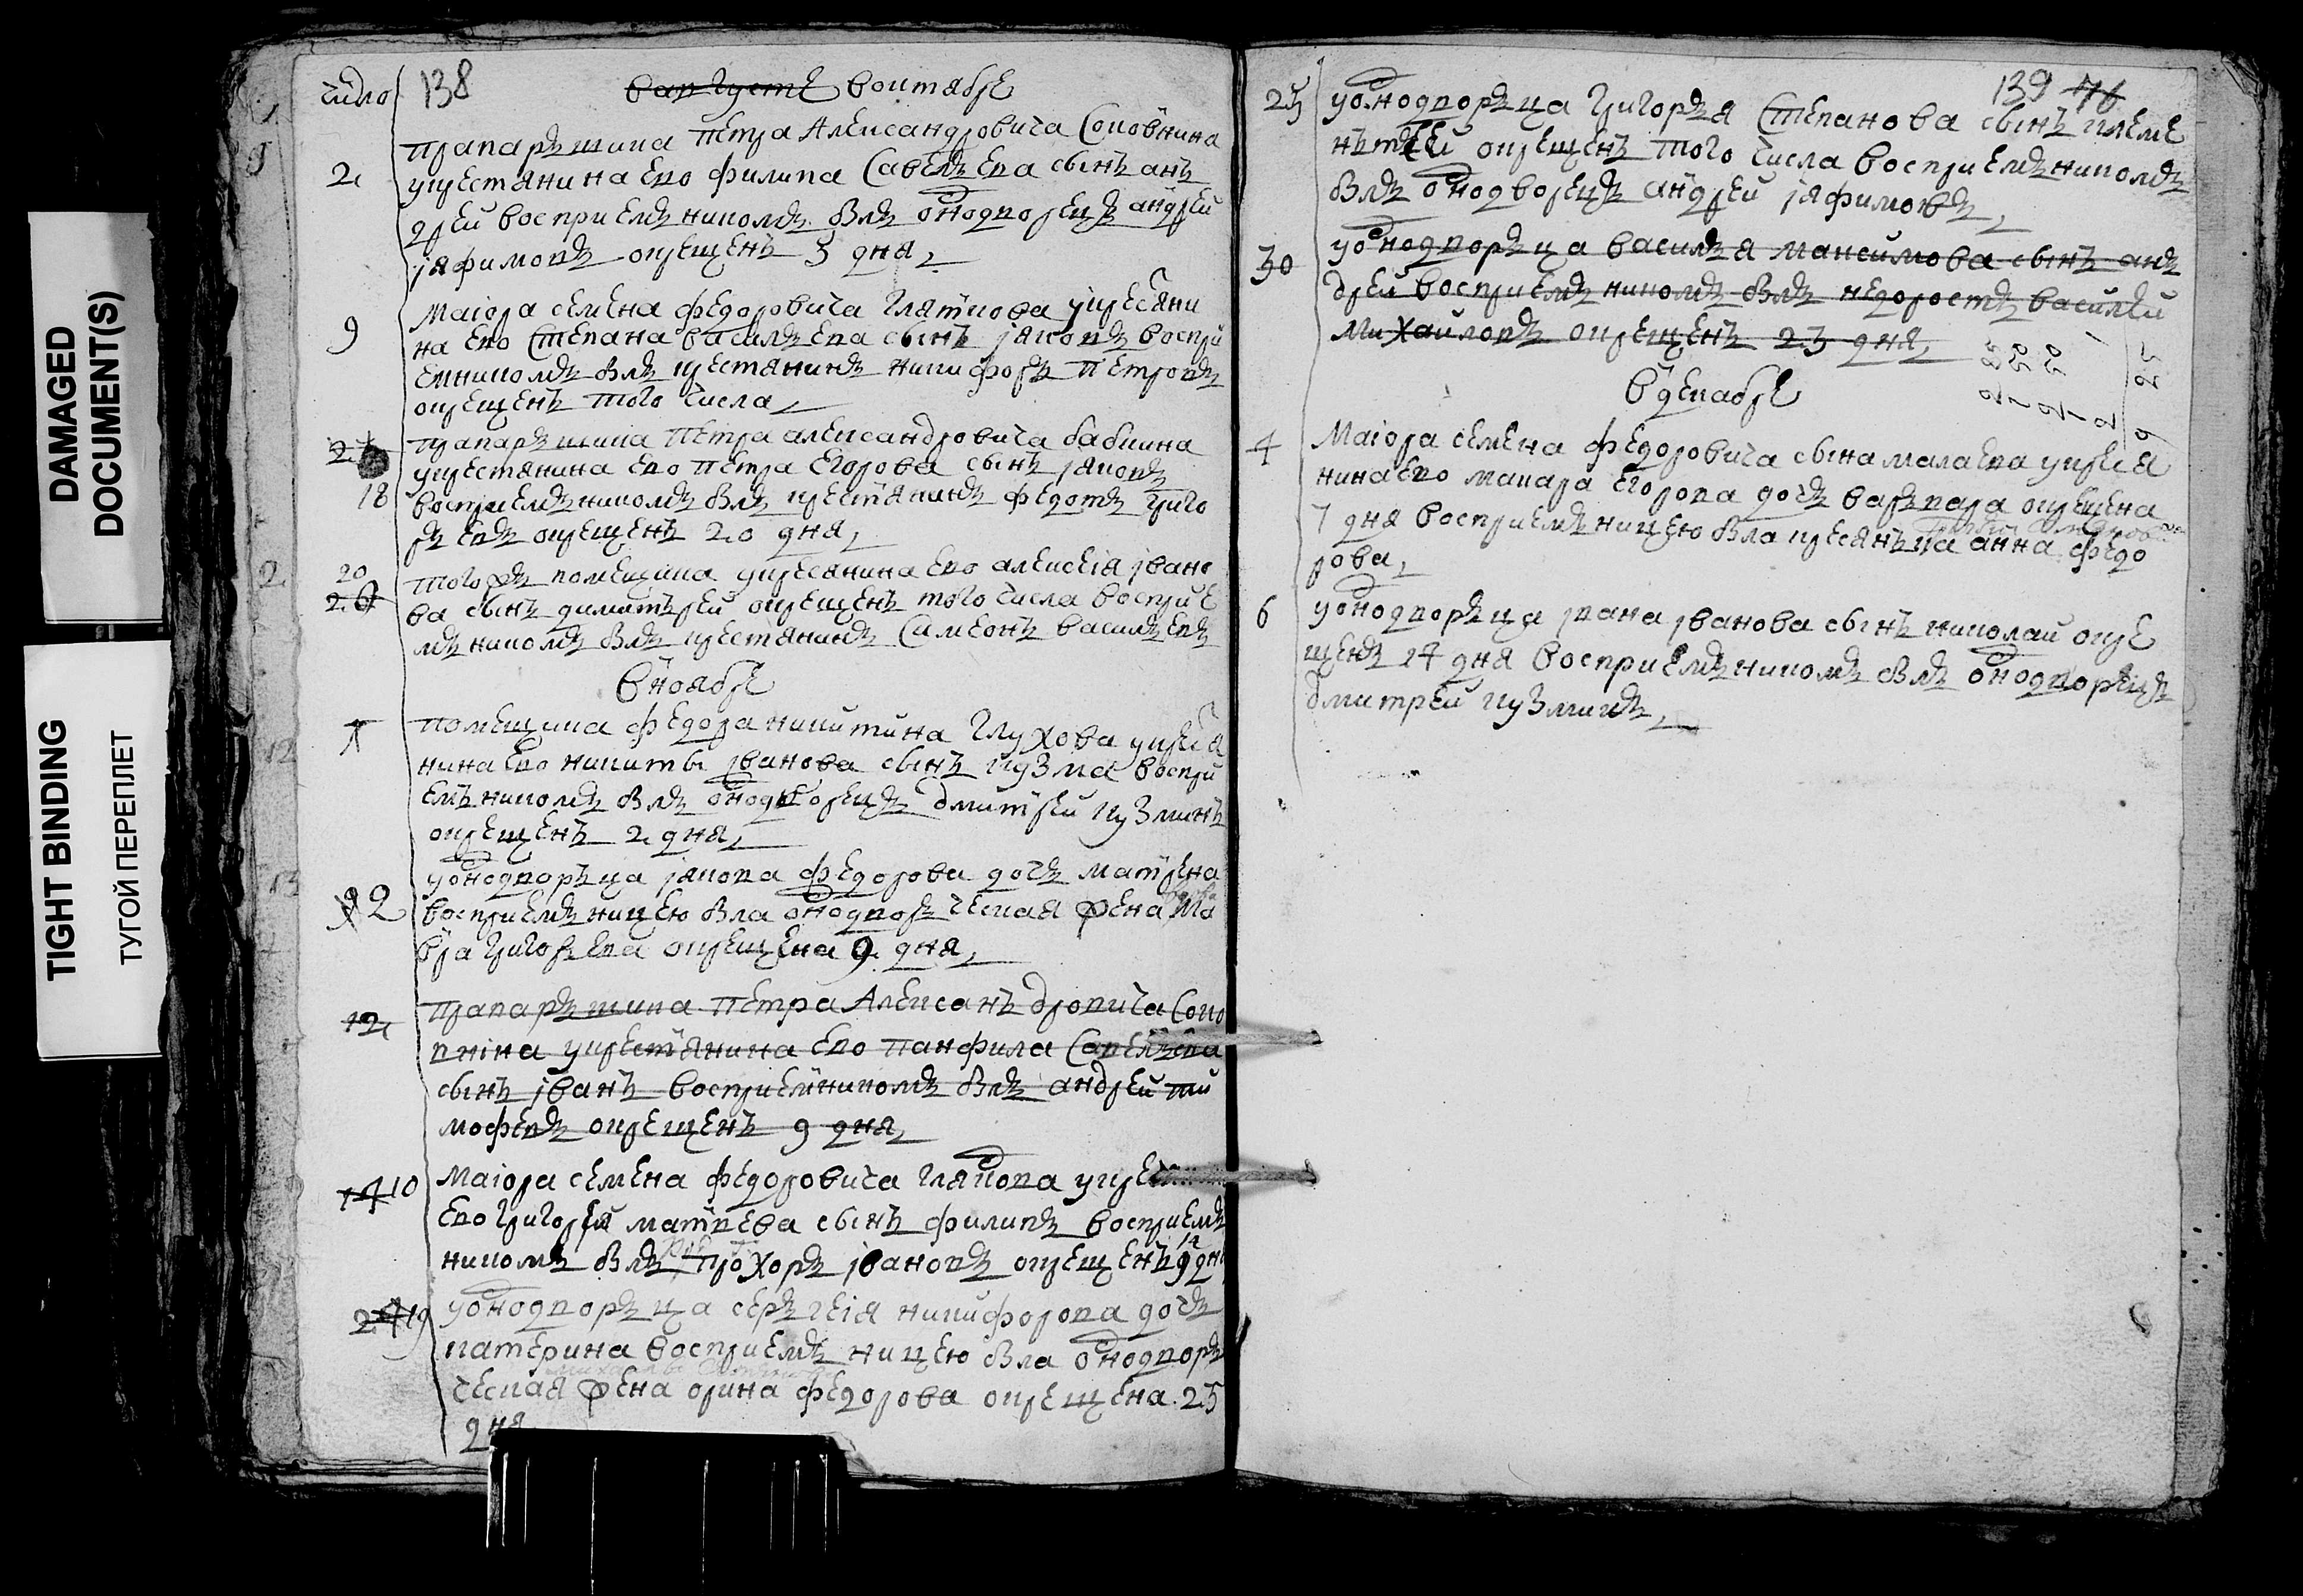 число 138 в августе воктябре
прапаръщика петра Александровича Соковнина
2 укрестянина ево филипа Савельева сынъ анъ
дрей восприемъникомъ былъ однодворецъ андрей
яфимовъ окрещенъ 3 дня
9 маиора семена федоровича гляткова укрестяни
на ево степана васильева сынъ яковъ воспри
емникомъ былъ крестянинъ никифоръ петровъ
окрещенъ того числа
прапаръщика петра александровича бабкина
укрестянина ево петра егорова сынъ яковъ
18 восприемъникомъ былъ крестьянинъ федотъ григо
рьевъ окрещенъ 20 дня
20 тогожъ помещика укресянина ево алексея ивано
ва сынъ димитърей окрещенъ того числа восприе
мъникомъ былъ крестянинъ Симеонъ васильевъ
в ноябре
1 помещика федора никитина глухова укрестя
нина ево никиты иванова сынъ кузма воспри
емъникомъ былъ однодворецъ дмитрей кузминъ
окрещенъ 2 дня
уоднодворъца якова федорова дочь матрена
2 восприемъницею была однодворъческая жена ма
вра григорьева окрещена 9 дня
12 прапаръщика петра Алексанъдровича Соко
внина укрестянина ево панфила Савельева
сынъ иванъ восприемникомъ былъ андрей ти
мофевъ окрещенъ 9 дня
14 10 маиора семена федоровича глякова укрест
ево григорья матвева сынъ филипъ восприемъ
никомъ былъ прохоръ ивановъ окрещенъ 9 дня
24 19 уоднодворъца серъгея никифорова дочь
катерина восприемъницею была однодворъ
ческая жена орина федорова окрещена 25
дня
139 76
25 уоднодворъца григорья степанова сынъ климе
нътей окрещенъ того числа восприемъникомъ
былъ однодворецъ андрей яфимовъ
30 уоднодворъца василья максимова сынъ анъ
дрей восприемъникомъ былъ недоросль василей
михайловъ окрещенъ 23 дня
в декабре
4 маиора семена федоровича сына малаева укрестя
нина ево макара егорова дочь варъвара окрещена
7 дня восприемъницею была кресянъка анна федо
рова
6 уоднодворъца ивана иванова сынъ николай окре
щенъ 14 дня восприемъникомъ былъ однодворецъ
дмитрей кузминъ
DAMAGED
DOCUMENT(S)
TIGHT BINDING
ТУГОЙ ПЕРЕПЛЕТ